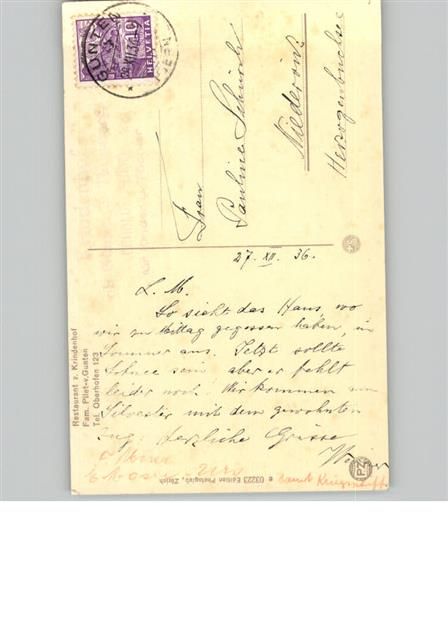 GUNTEN
HELVETIA
10
Frau
Pauline Schürch
Niederönz
Herzogenbuchsee
27. XII. 36.
L. M.
So sieht das Haus, wo
wir zu Mittag gegessen haben, im
Sommer aus. Jetzt sollte
Schnee sein aber er fehlt
leider noch! Wir kommen am
Silvester mit dem gewohnten
Zug. Herzliche Grüsse
Restaurant z. Krindenhof
Fam. Pilet-v. Gunten
Tel. Oberhofen 123
e 03223 Edition Photoglob, Zürich
PZ